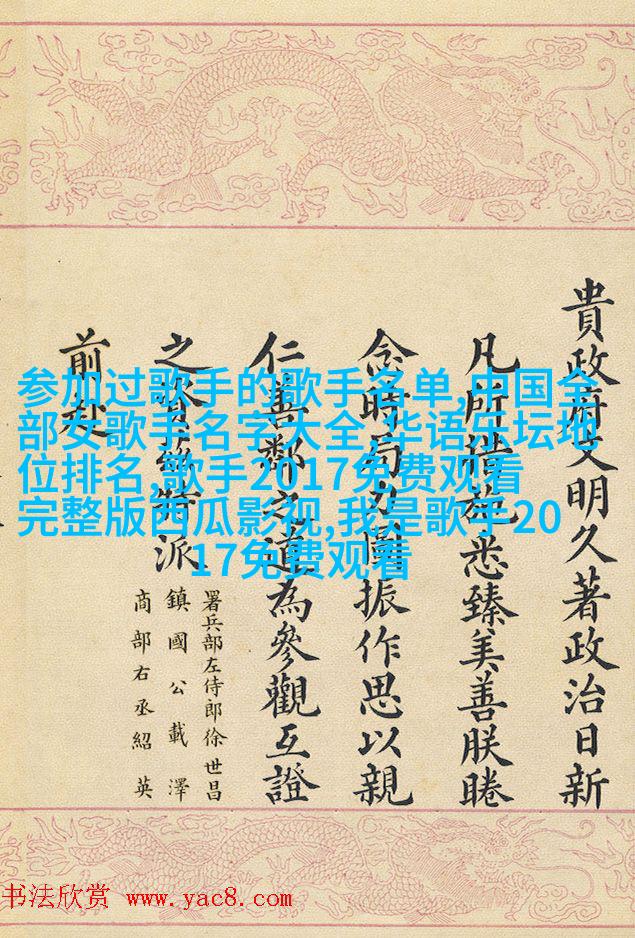 参加过歌手的歌手名单,中国全
部女歌手名字大全,华语乐坛地
位排名,歌手2017免费观看
完整版西瓜影视,我是歌手20
17免费观看
貴政府文明久著政治日新
凡所措施悉臻美善朕睠
念時局力圖振作思以親
仁善鄰之道為參觀互證
之資茲特派
署兵部左侍郎徐世昌
鎮國公載澤
商部右丞紹英
前赴
书法欣赏 www.yac8.com